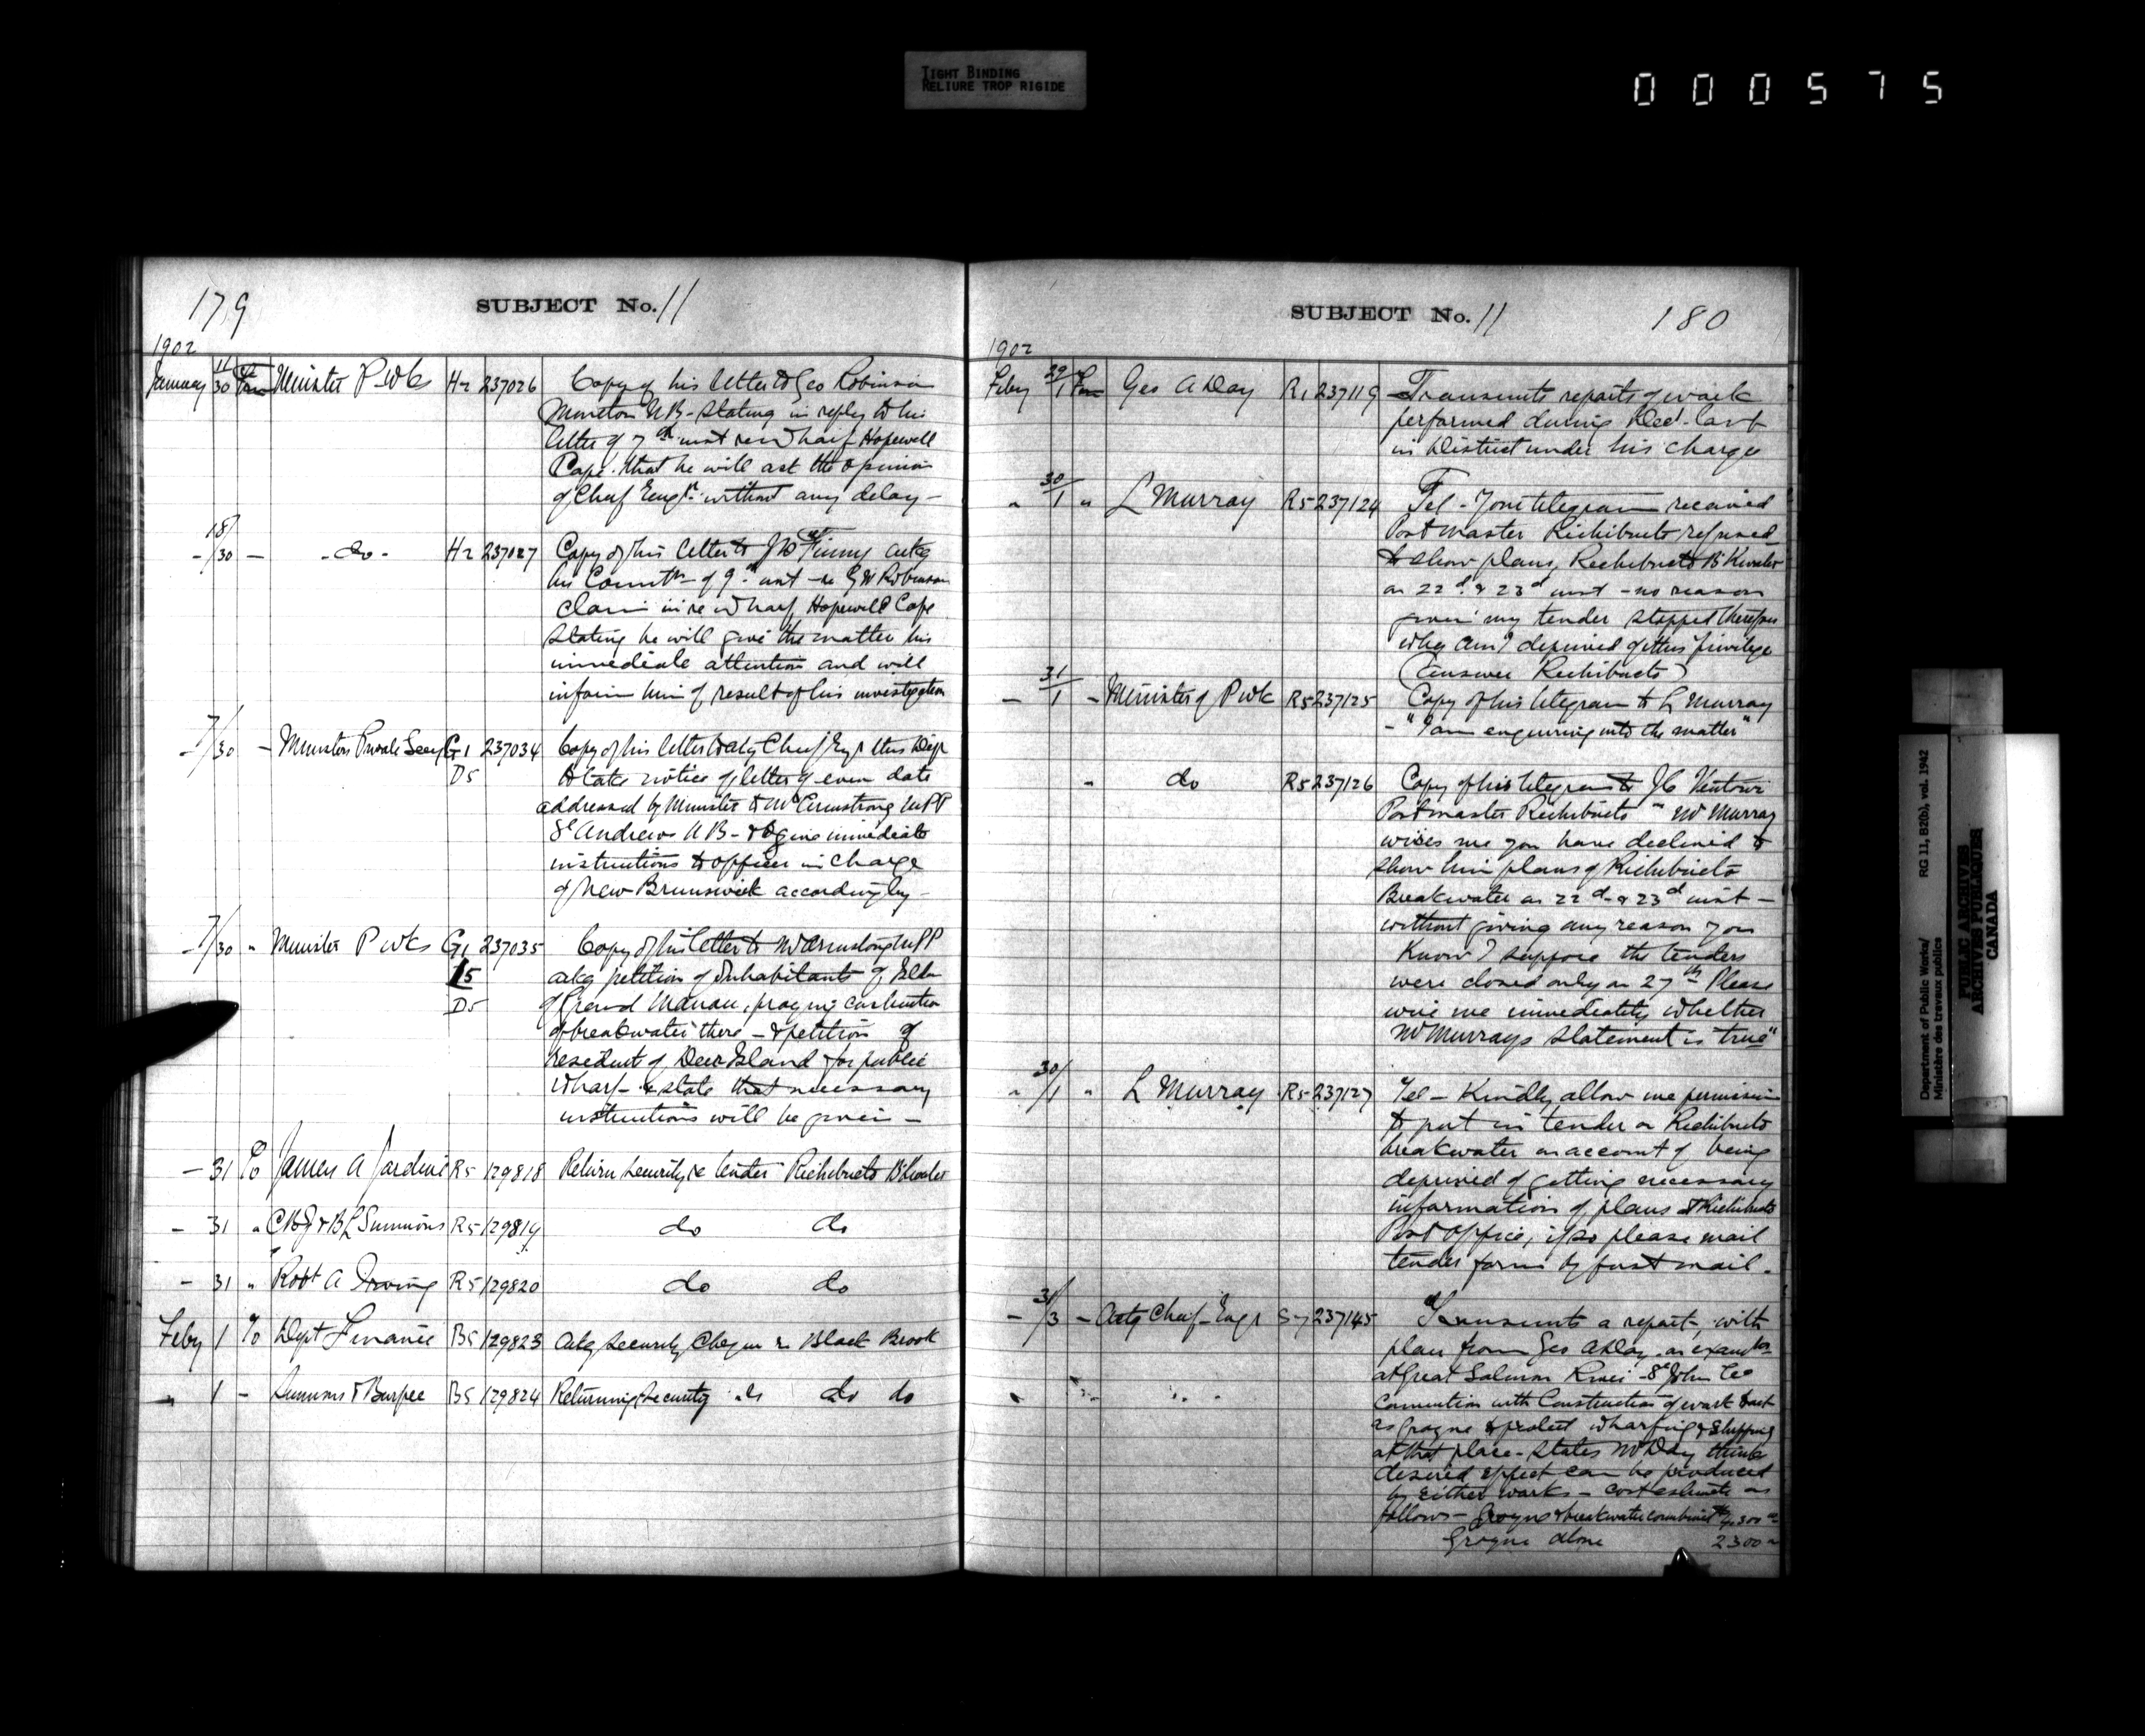 TIGHT BINDING
RELIURE TROP RIGIDE
000575
179
SUBJECT No. 11
1902
January 11/30 Minister P Wks H2 237026 Copy of his letter to Geo Robinson
Moncton N B - stating in reply to his
letter of 7th inst re Wharf Hopewell
Cape that he will ask the opinion
of Chief Engr without any delay -
- 18/30 - - do - H2 237027 Copy of his letter to
his of 9th inst - re Robinson
claim in re Wharf, Hopewell Cape
stating he will give the matter his
immediate attention and will
inform him of result of his investigation
- 7/30 - Ministers Private Secy G1 237034 Copy of his letter to Actg Chief Engr this Dept
D5 to take notice of letter of even date
addressed by Minister to Mr Armstrong MPP
St Andrews N B - & to give immediate
instructions to officer in charge
of New Brunswick accordingly -
- 7/30 " Minister P Wks G1 237035 Copy of his letter to Mr Armstrong MPP
15 ackg petition of Inhabitants of
D5 of Grand Manan, praying construction
of breakwater there - & petition of
resident of Deer Island for public
Wharf - & state that necessary
instructions will be given -
- 31 To James A Jardine R5 129818 Return security re tender Richibucto B'kwater
- 31 " Simmons R5 129819 do do
- 31 " Robt A Irving R5 129820 do do
Feby 1 To Dept Finance B5 129823 Ackg Security Cheque re Black Brook
" 1 - Simmons & Burpee B5 129824 Returning security do do
SUBJECT No. 11
180
1902
Feby 29/1 Geo A Day R1 237119 Transmits reports of work
performed during Decr last
in District under his charge
" 30/1 " L Murray R5 237124 Tel - Your telegram received
Postmaster Richibucto refused
to show plans, Richibucto B'Kwater
on 22d & 23d inst - no reason
given my tender stopped therefore
why am I deprived of this privilege
(answer Richibucto)
- 31/1 - Minister of P Wk R5 237125 Copy of his telegram to L Murray
- "I am enquiring into the matter"
" do R5 237126 Copy of his telegram to
Postmaster Richibucto " Mr Murray
wires me you have declined to
show him plans of Richibucto
Breakwater on 22d & 23d inst -
without giving any reason you
know I suppose the tenders
were closed only on 27th Please
wire me immediately whether
Mr Murrays statement is true"
" 30/1 " L Murray R5 237127 Tel - Kindly allow me permission
to put in tender on Richibucto
breakwater on account of being
deprived of getting necessary
information of plans at Richibucto
Post Office, if so please mail
tender forms by fast mail.
- 31/3 - Actg Chief Engr S7 237145 Transmits a report, with
plan from Geo A Day on examtn
at Great Salmon River - St John Co
connection with Construction of work to act
as groyne & protect wharfing & shipping
at that place - states Mr Day thinks
desired effect can be produced
by either works - cost estimate as
follows - Groyne & breakwater combined
Groyne alone 2300
Department of Public Works/
Ministère des travaux publics
RG 11, B2(b), vol. 1942
PUBLIC ARCHIVES
ARCHIVES PUBLIQUES
CANADA